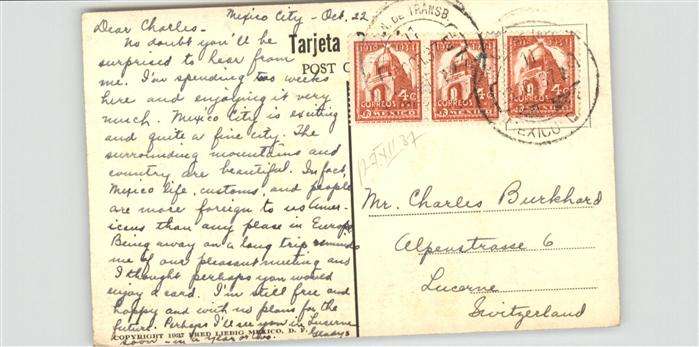 Mexico City - Oct. 22
Dear Charles -
No doubt you'll be
surprised to hear from
me. I'm spending two weeks
here and enjoying it very
much. Mexico City is exciting
and quite a fine city. The
surrounding mountains and
country are beautiful. In fact,
Mexico life, customs, and people
are more foreign to us Amer-
icans than any place in Europe.
Being away on a long trip reminds
me of our pleasant meeting and
I thought perhaps you would
enjoy a card. I'm still free and
happy and with no plans for the
future. Perhaps I'll see you in Lucerne
soon - in a year or two.
Gladys
COPYRIGHT 1937 FRED LIEDIG MEXICO, D. F.
Tarjeta
POST C
DE TRANSB
CORREOS 4¢
MEXICO
CORREOS 4¢
MEXICO
4¢
MEXICO
MEXICO D.
Mr. Charles Burkhard
Alpenstrasse 6
Lucerne
Switzerland